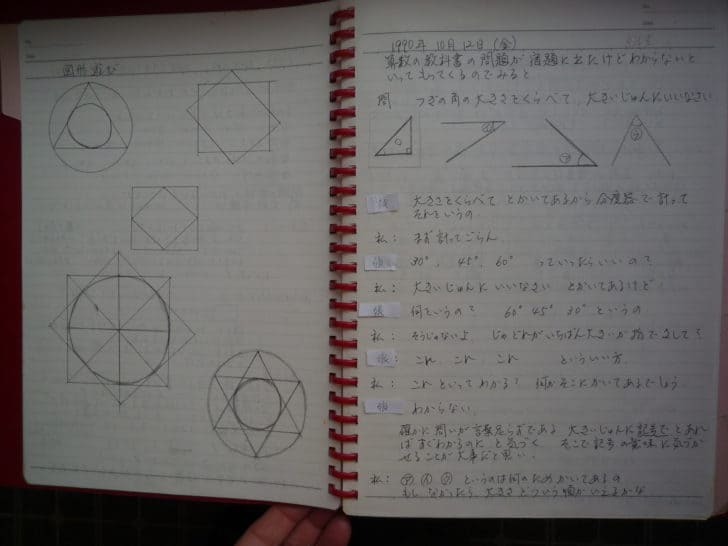 図形遊び
1990年 10月12日 (金)
算数の教科書の問題が宿題に出たけどわからないと
いってもってくるのでみると
問 つぎの角の大きさをくらべて、大きいじゅんにいいなさい
大きさをくらべて とかいてあるから 分度器で計って
それをいうの
私: まず計ってごらん
30°、45°、60° っていったらいいの?
私: 大きいじゅんに いいなさい とかいてあるけど
何というの? 60° 45° 30° というの
私: そうじゃないよ、じゃどれがいちばん大きいか指でさして?
これ、これ、これ といういい方
私: これといってわかる? 何かそこにかいてあるでしょう
わからない、
確かに問いが言葉足らずである 大きいじゅんに記号で とあれ
ばすぐわかるのに と気づく、そこで記号の意味に気づか
せることが大事だと思い、
私: ㋐ ㋑ ㋒ というのは何のため かいてあるの
もし なかったら 大きさ どういう順か いえるかな